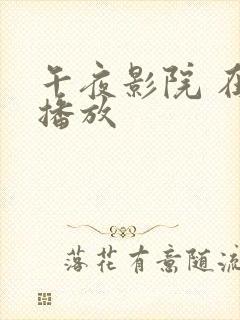 午夜影院 在
播放
落花有意随流